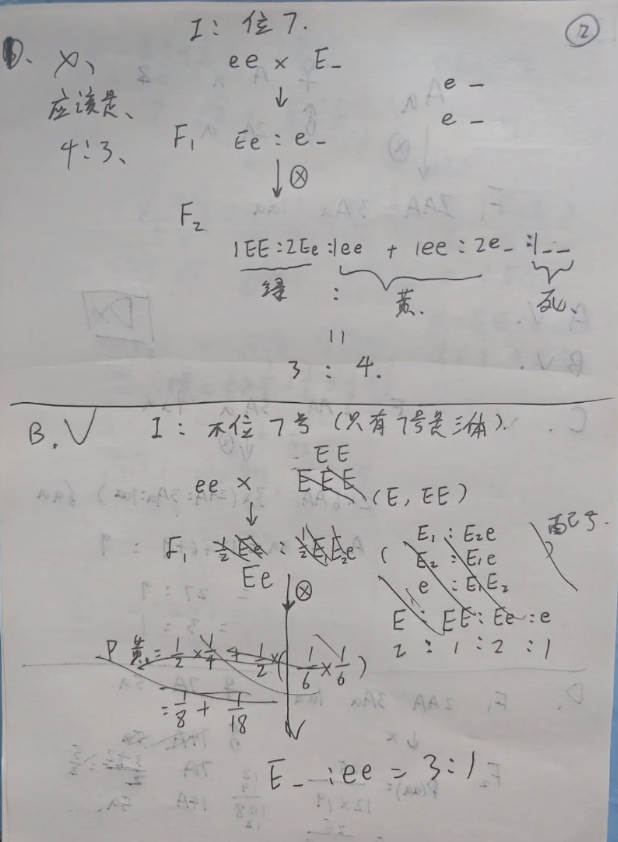 ②
I: 位7.
ee × E_
↓
D、×、
应该是、
4:3、
e _
e _
F₁ Ee : e_
↓⊗
F₂
1EE:2Ee:1ee + 1ee:2e_:1__
绿 : 黄. 死、
=
3 : 4.
B.√ I: 不位7号(只有7号是三体).
EE
ee × EEE (E, EE)
↓
F₁ ½Ee : ½E₁E₂e
Ee
↓⊗
( E₁ : E₂e
E₂ : E₁e
e : E₁E₂
E : EE : Ee : e
2 : 1 : 2 : 1
P黄 = 1/2 × 1/4 + 1/2 × ( 1/6 × 1/6 )
= 1/8 + 1/18
E_ : ee = 3:1